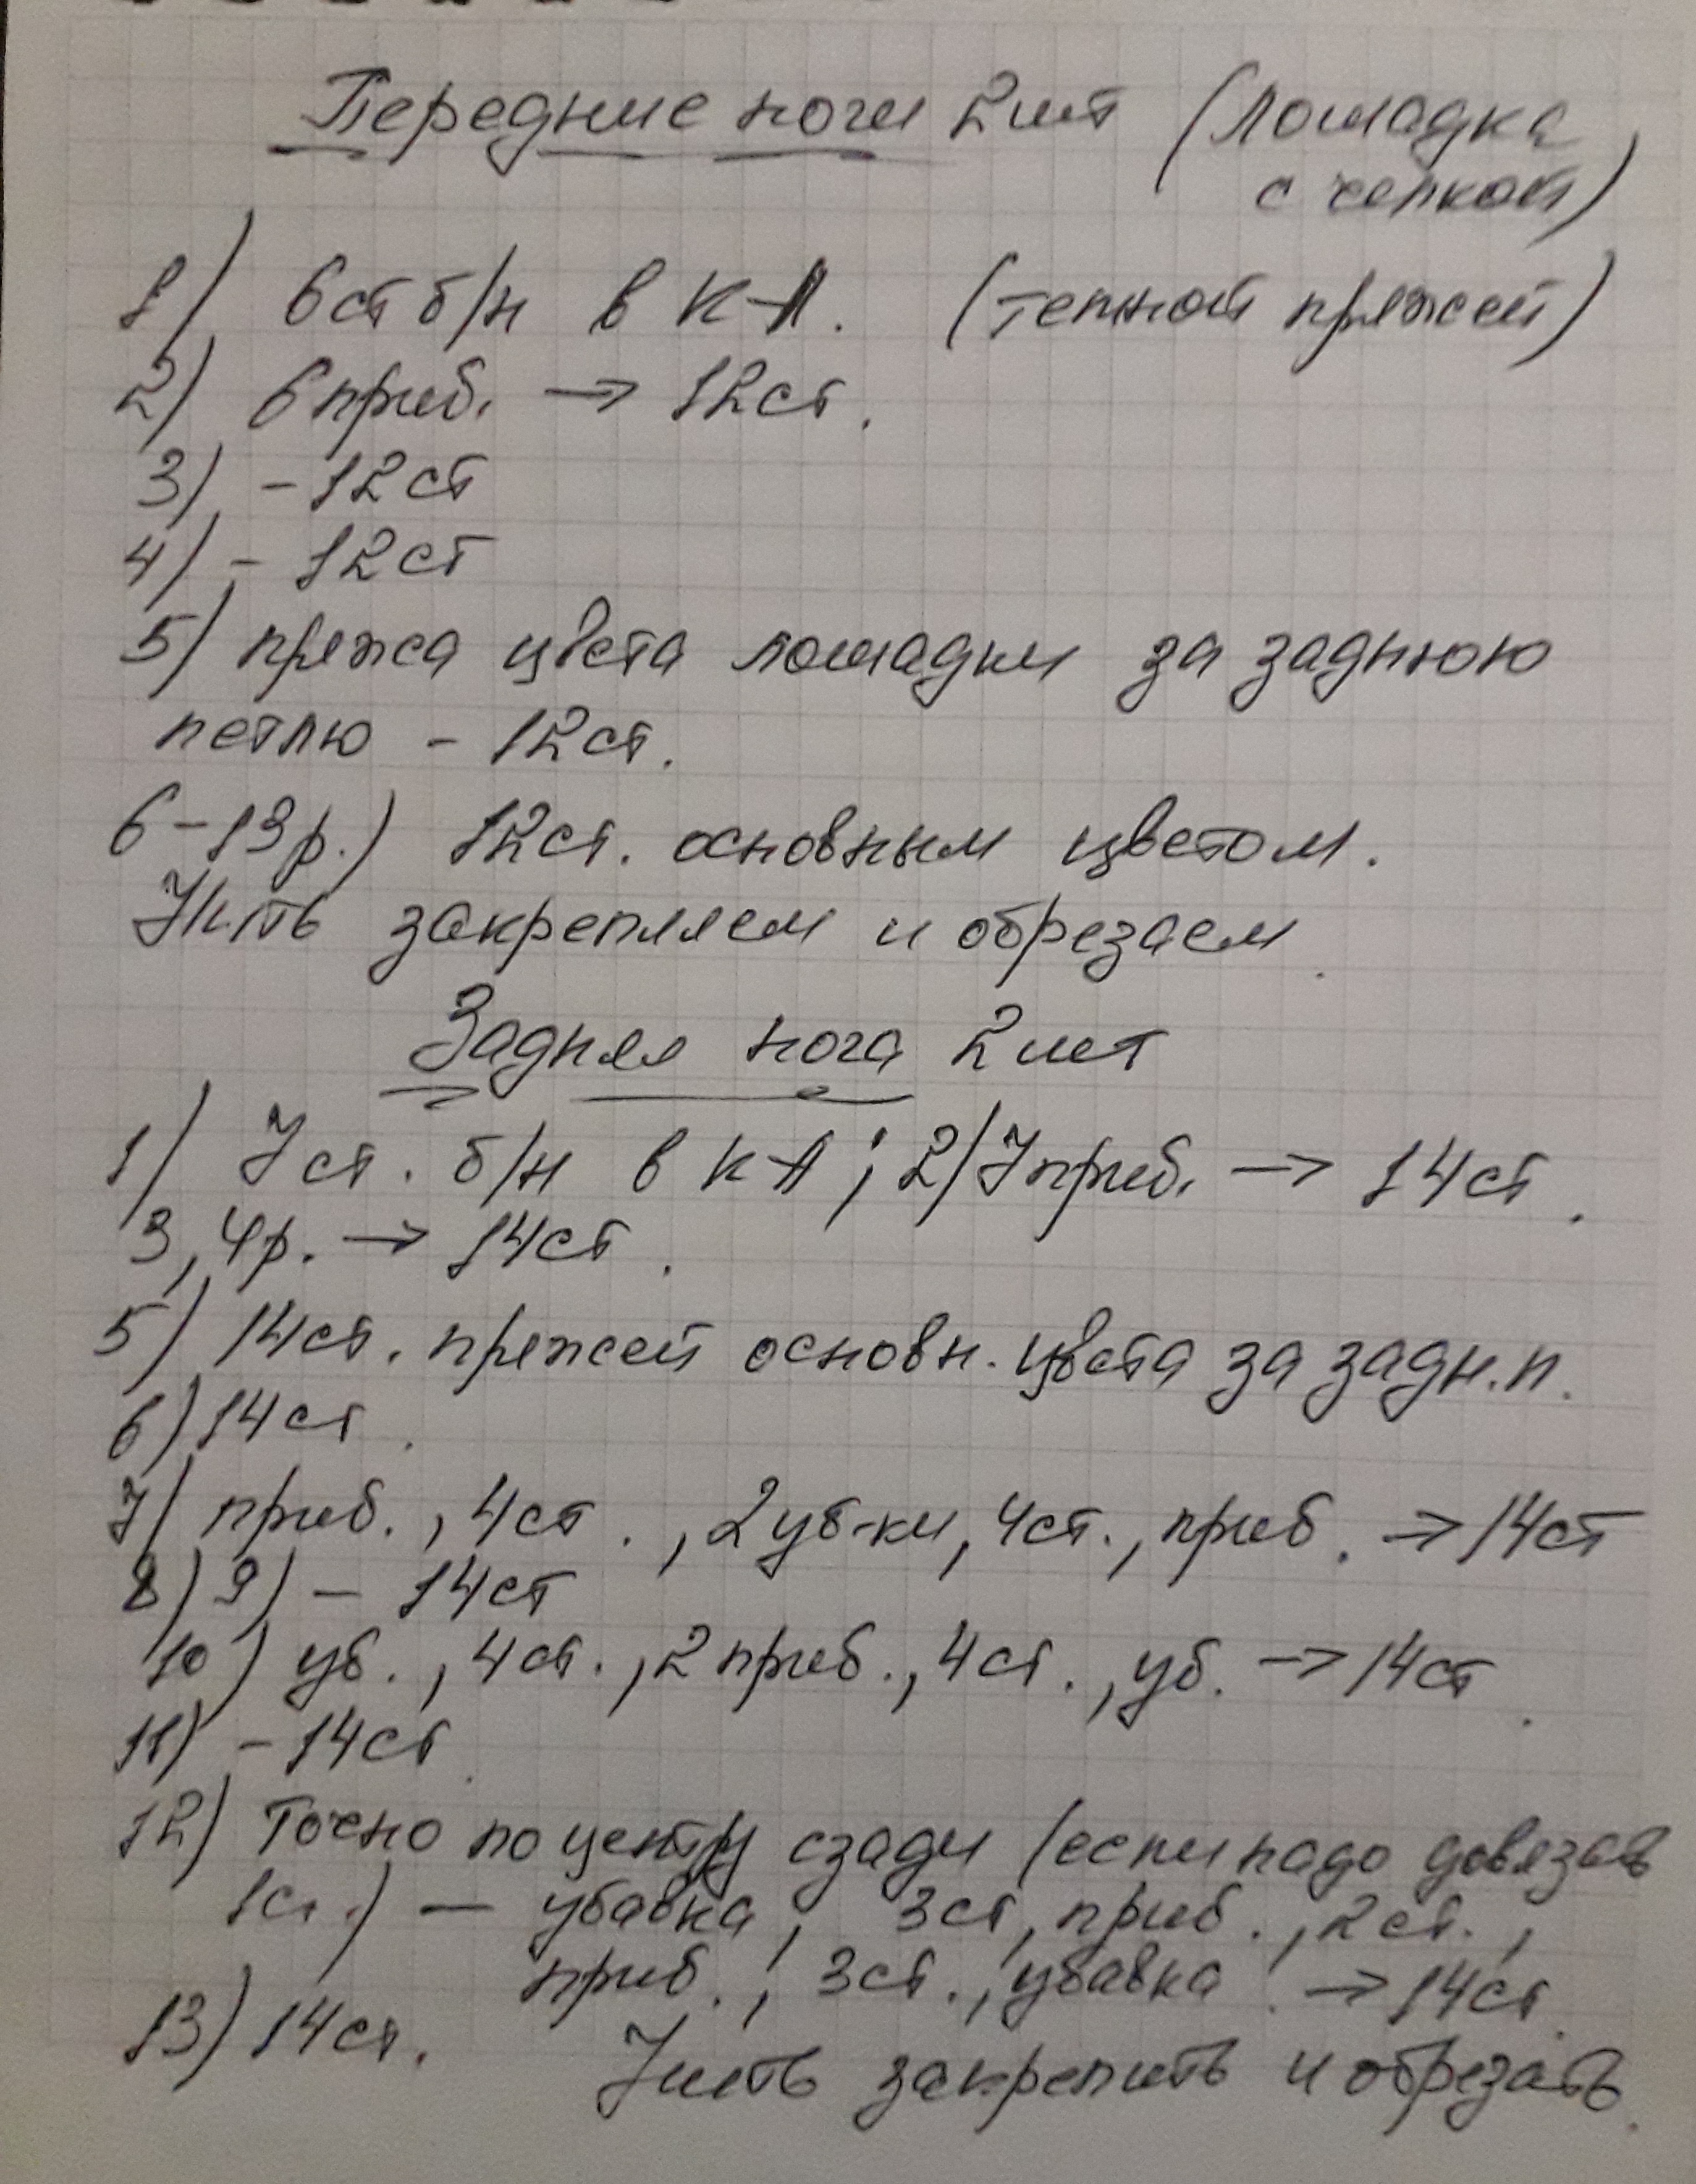 Передние ноги 2шт (лошадка
с челкой)
1) 6ст б/н в К-А. (темной пряжей)
2) 6 приб. → 12ст.
3) – 12ст
4) – 12ст
5) пряжа цвета лошадки за заднюю
петлю – 12ст.
6–13р.) 12ст. основным цветом.
Нить закрепляем и обрезаем.
Задняя нога 2шт
1) 7ст. б/н в К-А; 2) 7приб. → 14ст.
3, 4р. → 14ст.
5) 14ст. пряжей основн. цвета за задн. п.
6) 14ст.
7) приб., 4ст., 2уб-ки, 4ст., приб. → 14ст
8) 9) – 14ст
10) уб., 4ст., 2 приб., 4ст., уб. → 14ст.
11) – 14ст.
12) Точно по центру сзади (если надо довязать
1ст.) – убавка, 3ст, приб., 2ст.,
приб., 3ст., убавка. → 14ст.
13) 14ст. Нить закрепить и обрезать.